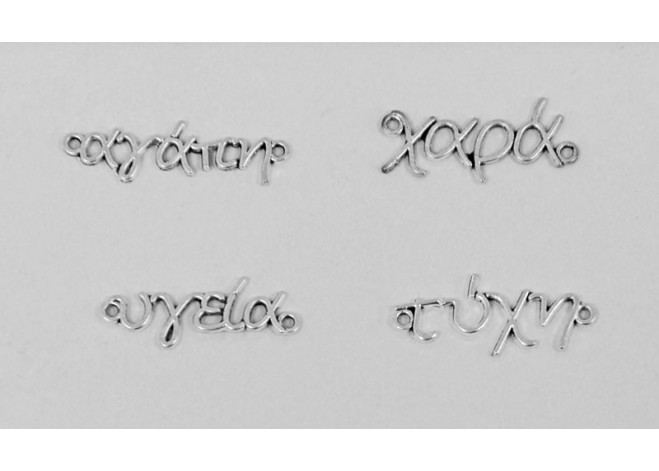 αγάπη χαρά
υγεία τύχη